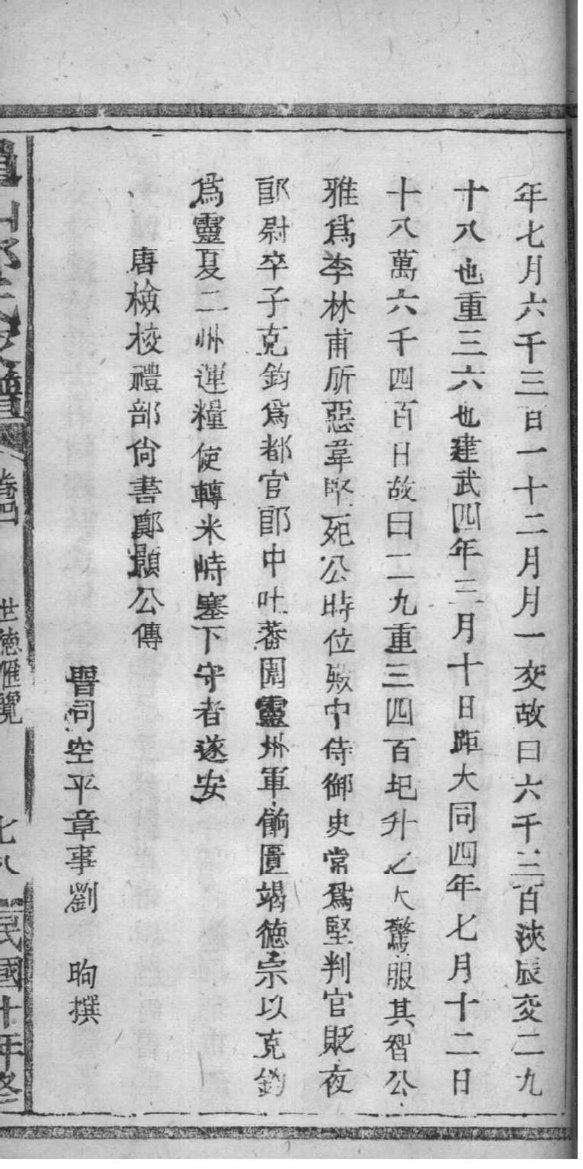 年七月六千三日一十二月月一交故曰六千三百浹辰交二九
十八也重三六也建武四年三月十日距大同四年七月十二日
十八萬六千四百日故曰二九重三四百圯升之大驚服其智公
雅爲李林甫所惡韋堅死公時位殿中侍御史常爲堅判官貶夜
郎尉卒子克鈞爲都官郎中吐蕃圍靈州軍餉匱竭德宗以克鈞
爲靈夏二州運糧使轉米峙塞下守者遂安
唐檢校禮部尙書鄭顥公傳
晉司空平章事劉昫撰
世德匯覽
七八
民國十年修